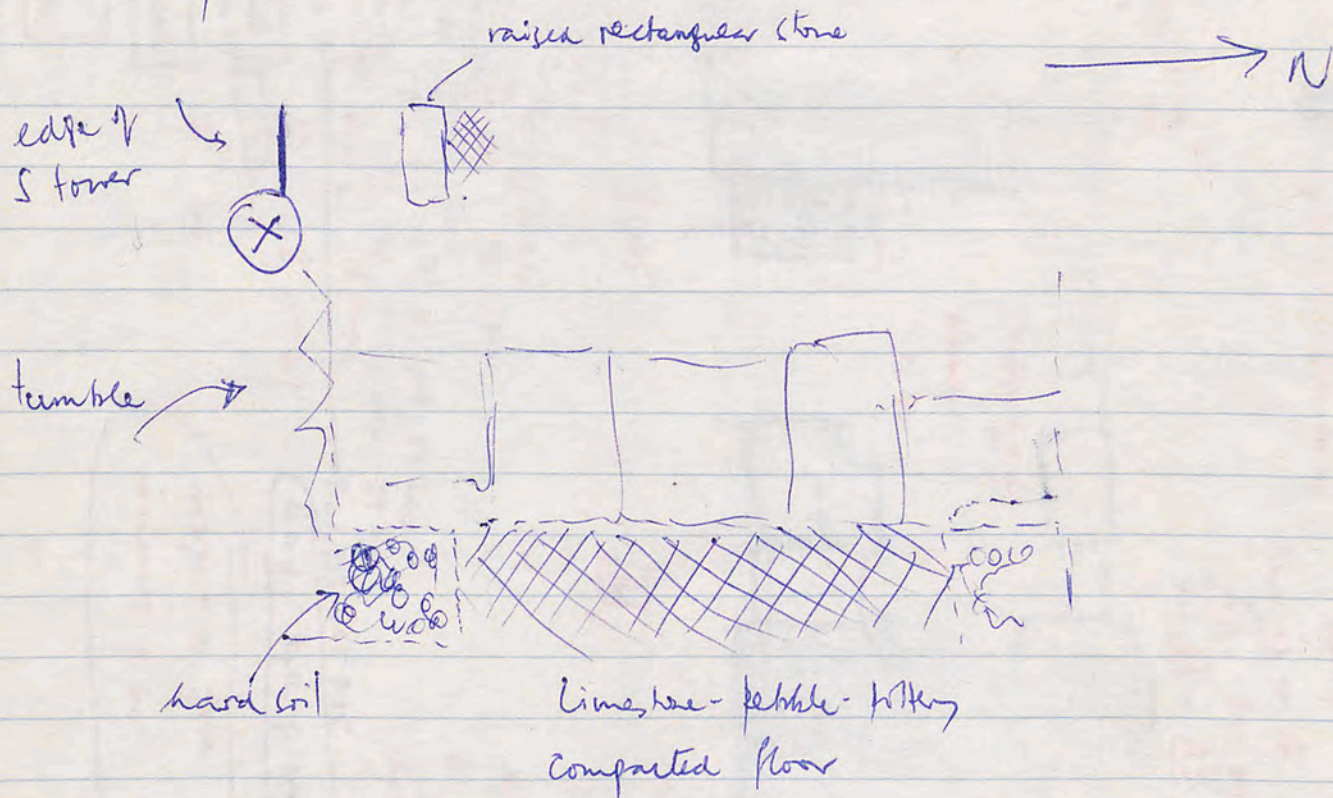 raised rectangular stone
N
edge of
S tower
tumble
hard soil
limestone-pebble-pottery
compacted floor